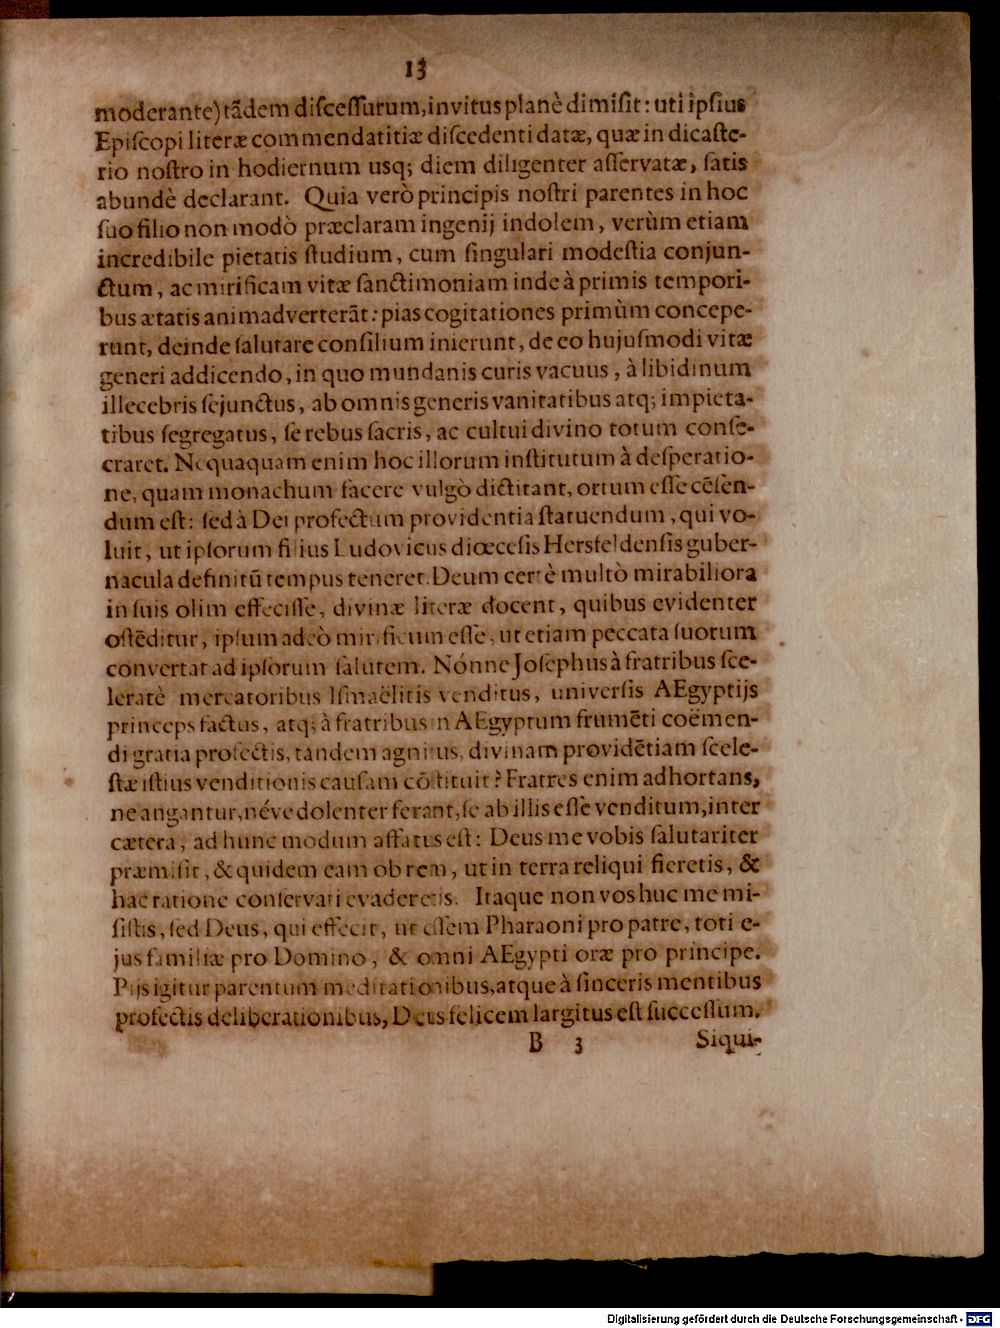 13
moderante) tãdem diſceſſurum, invitus planè dimiſit: uti ipſius
Epiſcopi literæ commendatitiæ diſcedenti datæ, quæ in dicaſte-
rio noſtro in hodiernum usq; diem diligenter aſſervatæ, ſatis
abundè declarant. Quia verò principis noſtri parentes in hoc
ſuo filio non modò præclaram ingenij indolem, verùm etiam
incredibile pietatis ſtudium, cum ſingulari modeſtia conjun-
ctum, ac mirificam vitæ ſanctimoniam inde à primis tempori-
bus ætatis animadverterãt: pias cogitationes primùm concepe-
runt, deinde ſalutare conſilium inierunt, de eo hujuſmodi vitæ
generi addicendo, in quo mundanis curis vacuus, à libidinum
illecebris ſejunctus, ab omnis generis vanitatibus atq; impieta-
tibus ſegregatus, ſe rebus ſacris, ac cultui divino totum conſe-
craret. Nequaquam enim hoc illorum inſtitutum à deſperatio-
ne, quam monachum facere vulgò dictitant, ortum eſſe cẽſen-
dum eſt: ſed à Dei profectum providentia ſtatuendum, qui vo-
luit, ut ipſorum filius Ludovicus diœceſis Hersfeldenſis guber-
nacula definitũ tempus teneret. Deum certè multò mirabiliora
in ſuis olim effeciſſe, divinæ literæ docent, quibus evidenter
oſtẽditur, ipſum adeò mirificum eſſe, ut etiam peccata ſuorum
convertat ad ipſorum ſalutem. Nónne Joſephus à fratribus ſce-
leratè mercatoribus Iſmaëlitis venditus, univerſis AEgyptijs
princeps factus, atq; à fratribus in AEgyptum frumẽti coëmen-
di gratia profectis, tandem agnitus, divinam providẽtiam ſcele-
ſtæ iſtius venditionis cauſam cõſtituit? Fratres enim adhortans,
ne angantur, néve dolenter ferant, ſe ab illis eſſe venditum, inter
cætera, ad hunc modum affatus eſt: Deus me vobis ſalutariter
præmiſit, & quidem eam ob rem, ut in terra reliqui fieretis, &
hac ratione conſervati evaderetis. Itaque non vos huc me mi-
ſiſtis, ſed Deus, qui effecit, ut eſſem Pharaoni pro patre, toti e-
jus familiæ pro Domino, & omni AEgypti oræ pro principe.
Pijs igitur parentum meditationibus, atque à ſinceris mentibus
profectis deliberationibus, Deus felicem largitus eſt ſucceſſum.
B 3 Siqui-
Digitalisierung gefördert durch die Deutsche Forschungsgemeinschaft - DFG